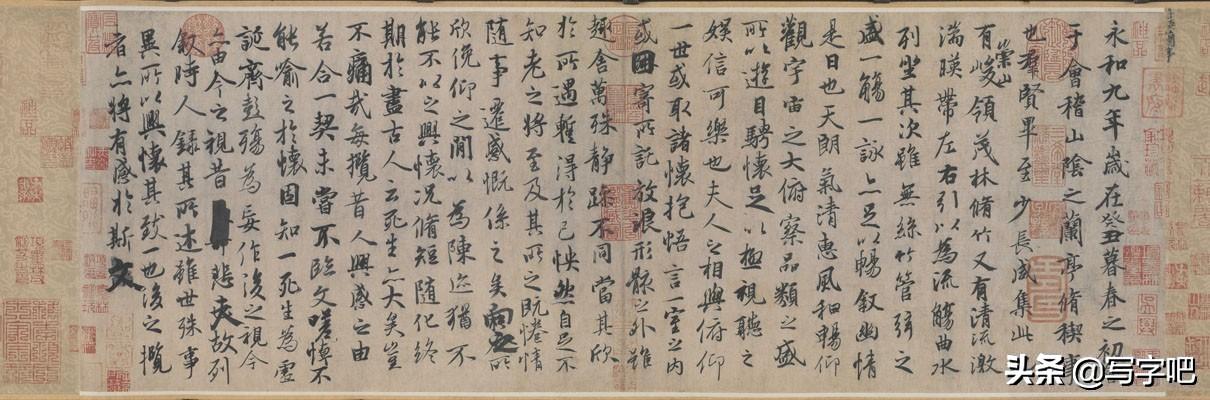 永和九年歲在癸丑暮春之初
于會稽山陰之蘭亭脩稧事
也群賢畢至少長咸集此
有崇山峻領茂林脩竹又有清流激
湍暎帶左右引以為流觴曲水
列坐其次雖無絲竹管弦之
盛一觴一詠亦足以暢叙幽情
是日也天朗氣清惠風和暢仰
觀宇宙之大俯察品類之盛
所以遊目騁懷足以極視聽之
娛信可樂也夫人之相與俯仰
一世或取諸懷抱悟言一室之內
或因寄所託放浪形骸之外雖
趣舍萬殊静躁不同當其欣
於所遇暫得於己怏然自足不
知老之將至及其所之既惓情
隨事遷感慨係之矣向之所
欣俛仰之閒以為陳迹猶不
能不以之興懷況脩短隨化終
期於盡古人云死生亦大矣豈
不痛哉每攬昔人興感之由
若合一契未嘗不臨文嗟悼不
能喻之於懷固知一死生為虛
誕齊彭殤為妄作後之視今
亦由今之視昔悲夫故列
叙時人錄其所述雖世殊事
異所以興懷其致一也後之攬
者亦將有感於斯文
头条@写字吧